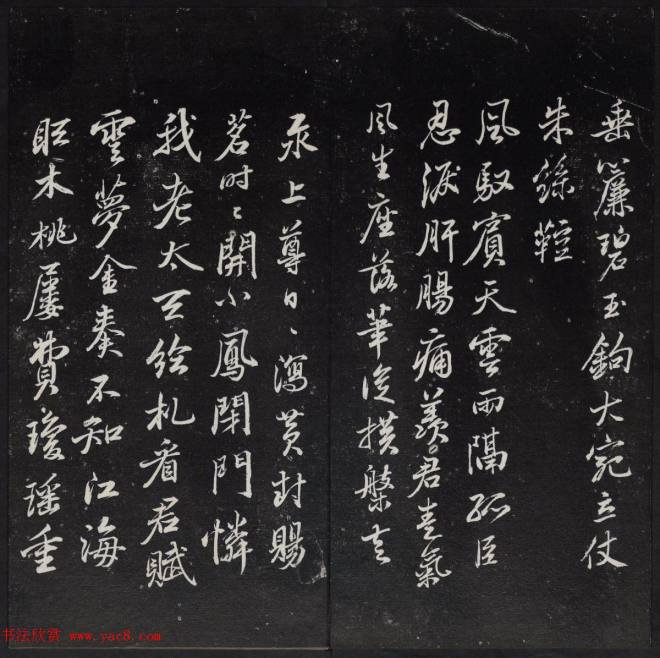 垂簾碧玉鉤大宛立仗
朱絲鞚
風馭賓天雲雨隔孤臣
忍淚肝腸痛羨君意氣
風生座落筆縱橫槃走
汞上尊日〻瀉黃封賜
茗時〻開小鳳閉門憐
我老太玄給札看君賦
雲夢金奏不知江海
眩木桃屢費瓊瑤重
书法欣赏 www.yac8.com